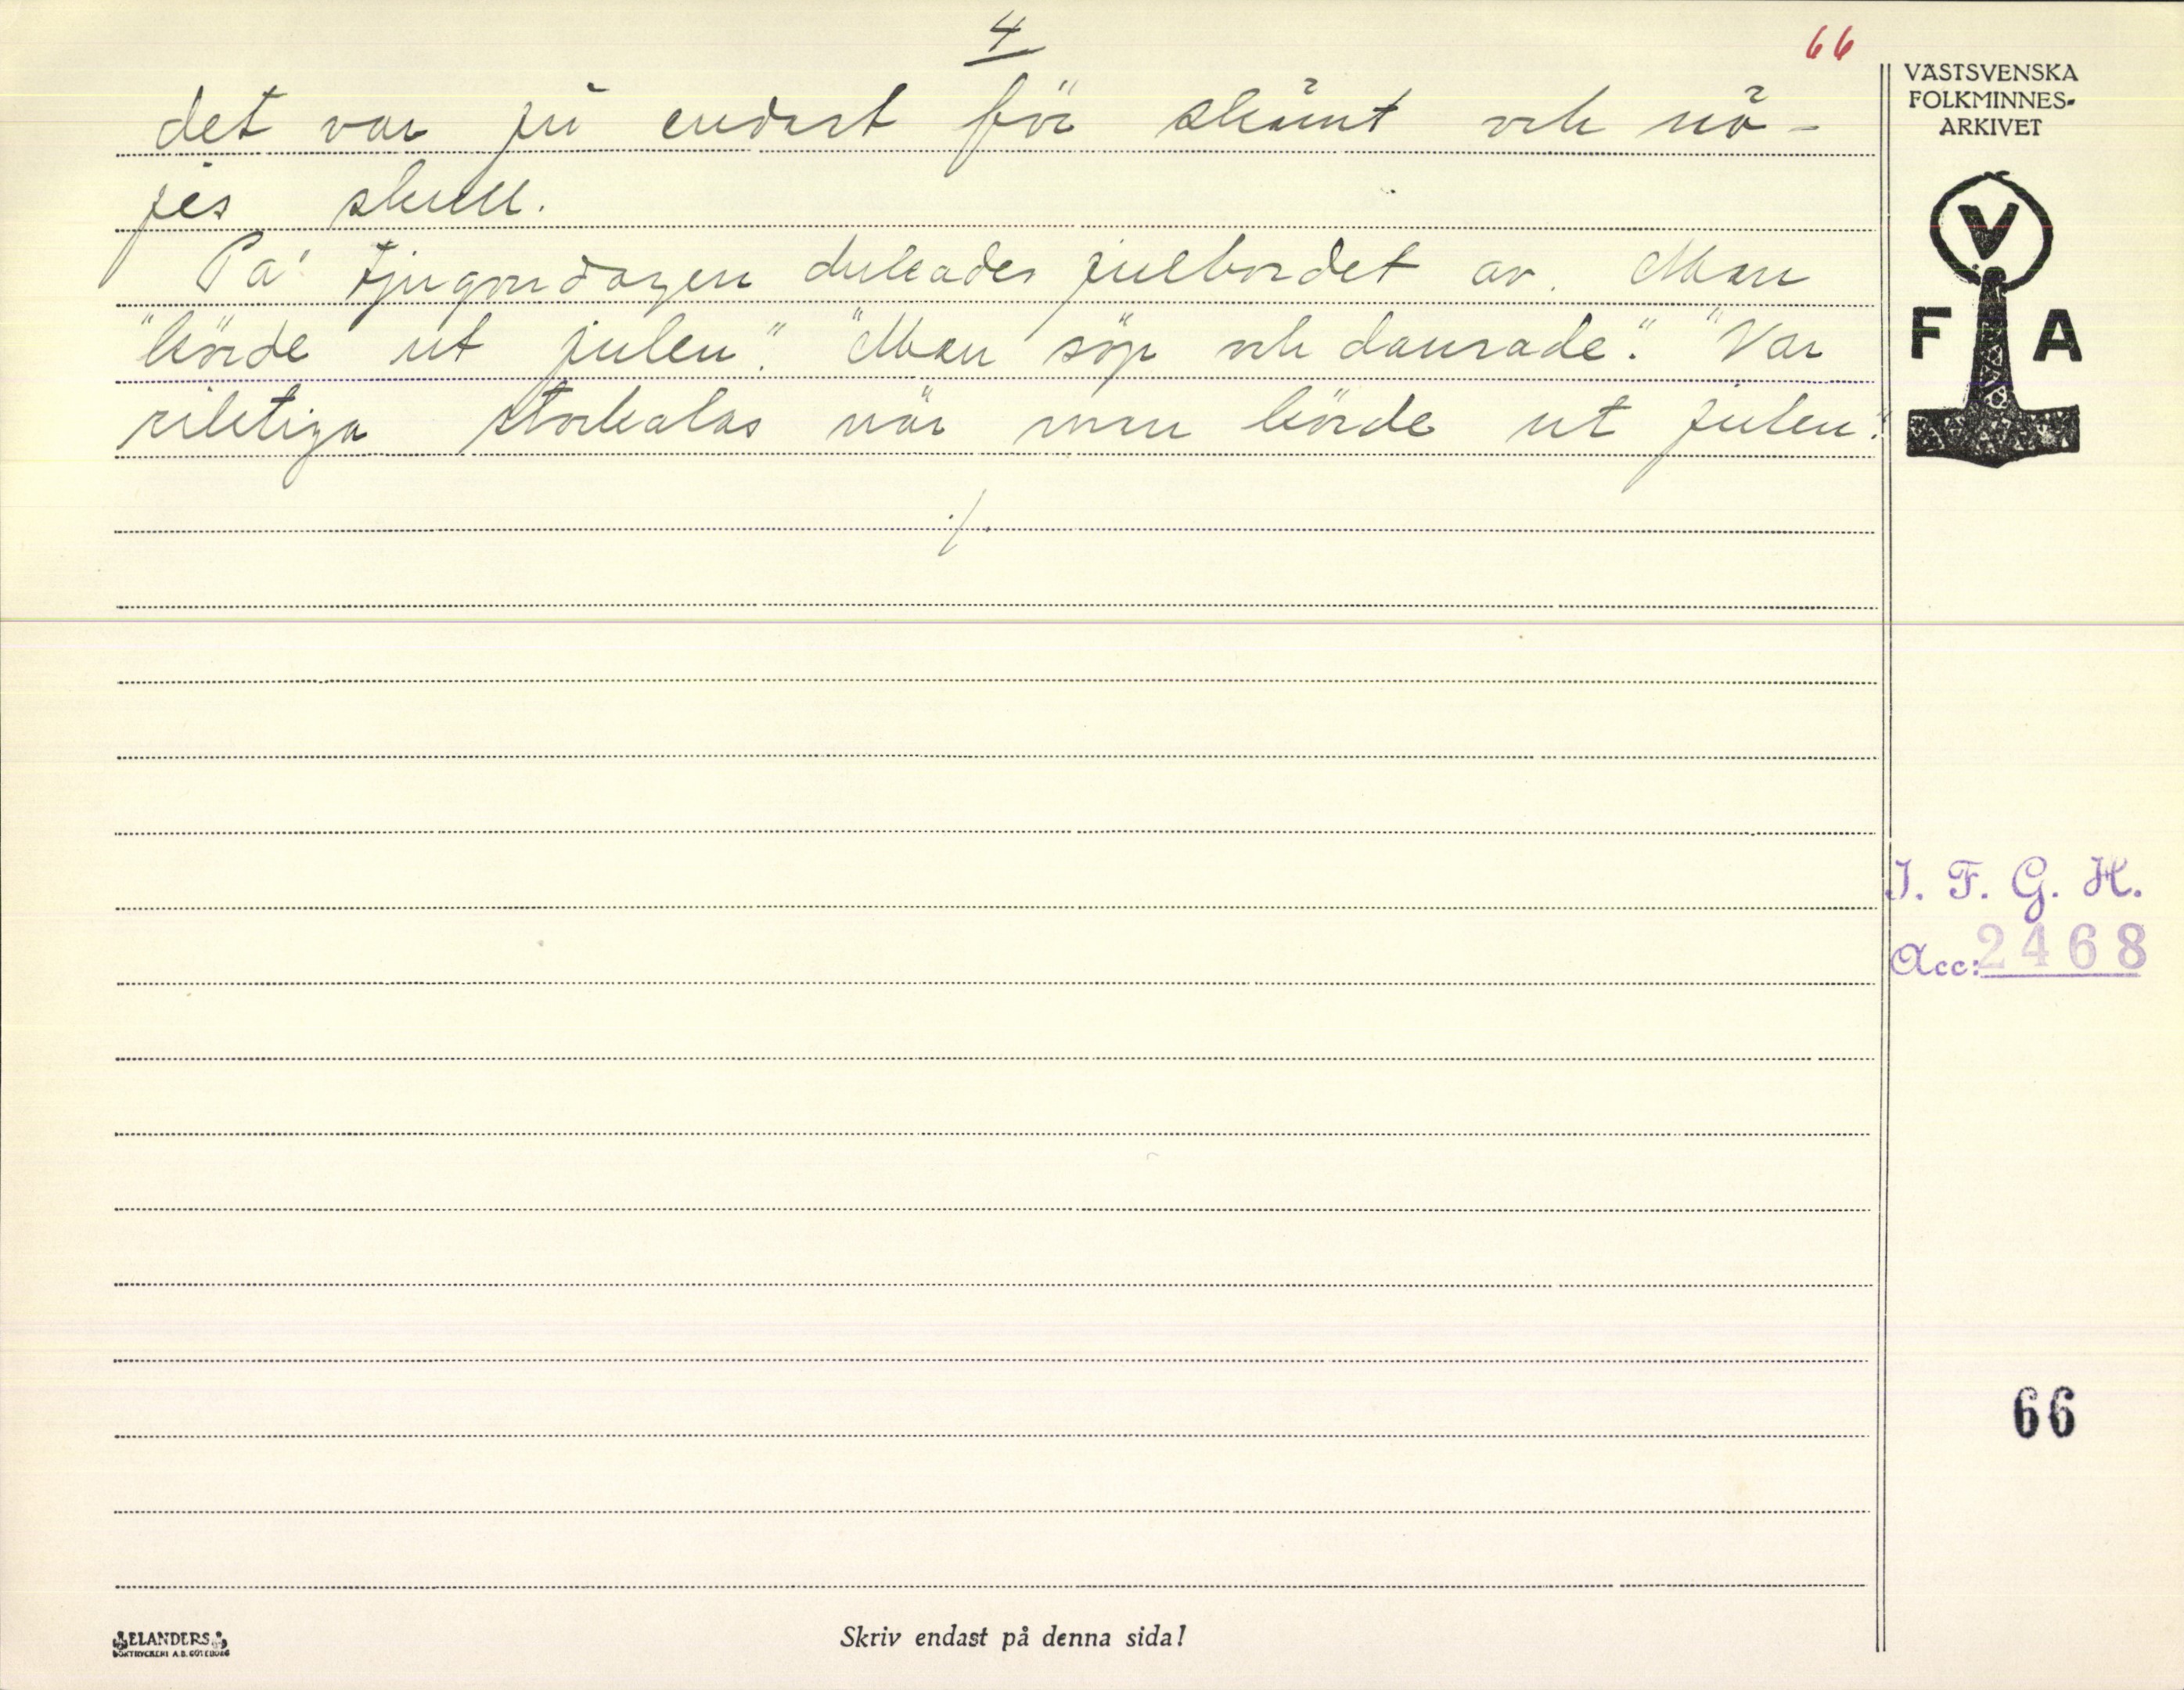 4
66
det var ju endast för skämt och nö-
jes skull.
På tjugondagen dukades julbordet av. Man
"körde ut julen". "Man söp och dansade". "Var
riktiga storkalas när man körde ut julen".
./.
VÄSTSVENSKA
FOLKMINNES-
ARKIVET
V
F A
I. F. G. H.
Acc: 2468
66
Skriv endast på denna sida!
ELANDERS
BOKTRYCKERI A.B. GÖTEBORG